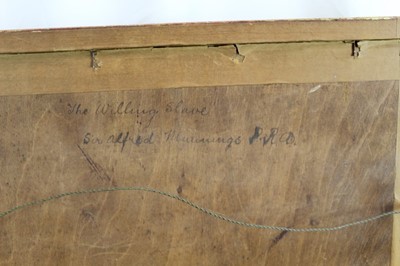 "The Willing Slave"
Sir Alfred Munnings P.R.A.